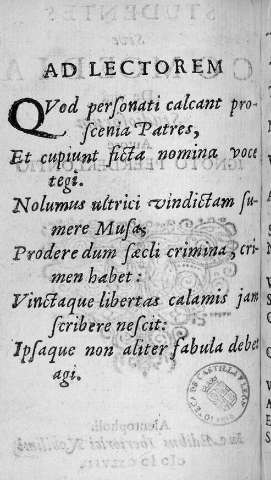 AD LECTOREM
QVod personati calcant pro-
scenia Patres,
Et cupiunt ficta nomina voce
tegi.
Nolumus ultrici vindictam su-
mere Musa;
Prodere dum sæcli crimina, cri-
men habet:
Vinctaque libertas calamis jam
scribere nescit:
Ipsaque non aliter fabula debet
agi.